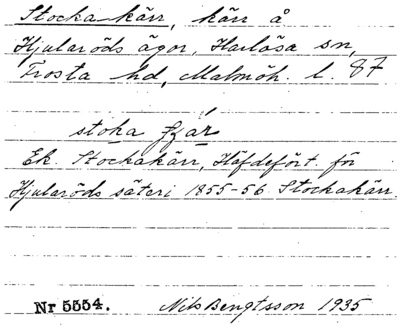 Stockakärr, kärr å
Hjularöds ägor, Harlösa sn,
Frosta hd, Malmöh. l. 87
stoka
Ek. Stockakärr, Häfdefört. för
Hjularöds säteri 1855-56 Stockakärr.
Nr 5554. Nils Bengtsson 1935